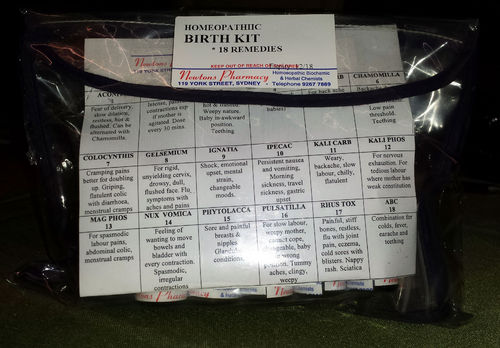 HOMEOPATHIIC
BIRTH KIT
* 18 REMEDIES
KEEP OUT OF REACH OF
12/18
Newtons Pharmacy
Homoeopathic Biochemic
& Herbal Chemists
119 YORK STREET, SYDNEY • Telephone 9267 7889
Newtons
119 YORK STR
ACON
CHAMOMILLA
Fear of delivery,
slow dilation,
restless, hot &
flushed. Can be
alternated with
Chamomilla.
Intense, painful
contractions esp
if mother is
agitated. Dose
every 30 mins.
Weepy nature.
Baby in awkward
position.
Teething
babies)
For back ache
Low pain
threshold.
Teething
COLOCYNTHIS
7
Cramping pains
better for doubling
up. Griping,
flatulent colic
with diarrhoea,
menstrual cramps
GELSEMIUM
8
For rigid,
unyielding cervix,
drowsy, dull,
flushed face. Flu
symptoms with
aches and pains
IGNATIA
9
Shock, emotional
upset, mental
strain,
changeable
moods.
IPECAC
10
Persistent nausea
and vomiting,
Morning
sickness, travel
sickness, gastric
upset
KALI CARB
11
Weary,
backache, slow
labour, chilly,
flatulent
KALI PHOS
12
For nervous
exhaustion. For
tedious labour
where mother has
weak constitution
MAG PHOS
13
For spasmodic
labour pains,
abdominal colic,
menstrual cramps
NUX VOMICA
14
Feeling of
wanting to move
bowels and
bladder with
every contraction.
Spasmodic,
irregular
contractions
PHYTOLACCA
15
Sore and painful
breasts &
nipples
conditions,
PULSATILLA
16
For slow labour,
weepy mother,
cannot cope,
baby
wrong
Tummy
aches, clingy,
weepy
RHUS TOX
17
Painful, stiff
bones, restless,
flu with joint
pain, eczema,
cold sores with
blisters. Nappy
rash. Sciatica
ABC
18
Combination for
colds, fever,
earache and
teething